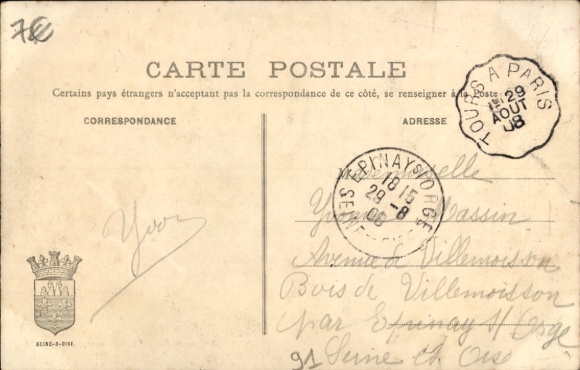 7€
CARTE POSTALE
Certains pays étrangers n'acceptant pas la correspondance de ce côté, se renseigner à la poste
CORRESPONDANCE
ADRESSE
TOURS A PARIS
29
AOUT
08
EPINAY S/ ORGE
18 15
29 -8
08
Mademoiselle
Yvonne Massin
Avenue de Villemoisson
Bois de Villemoisson
par Epinay s/ Orge
91 Seine et Oise
SEINE-&-OISE